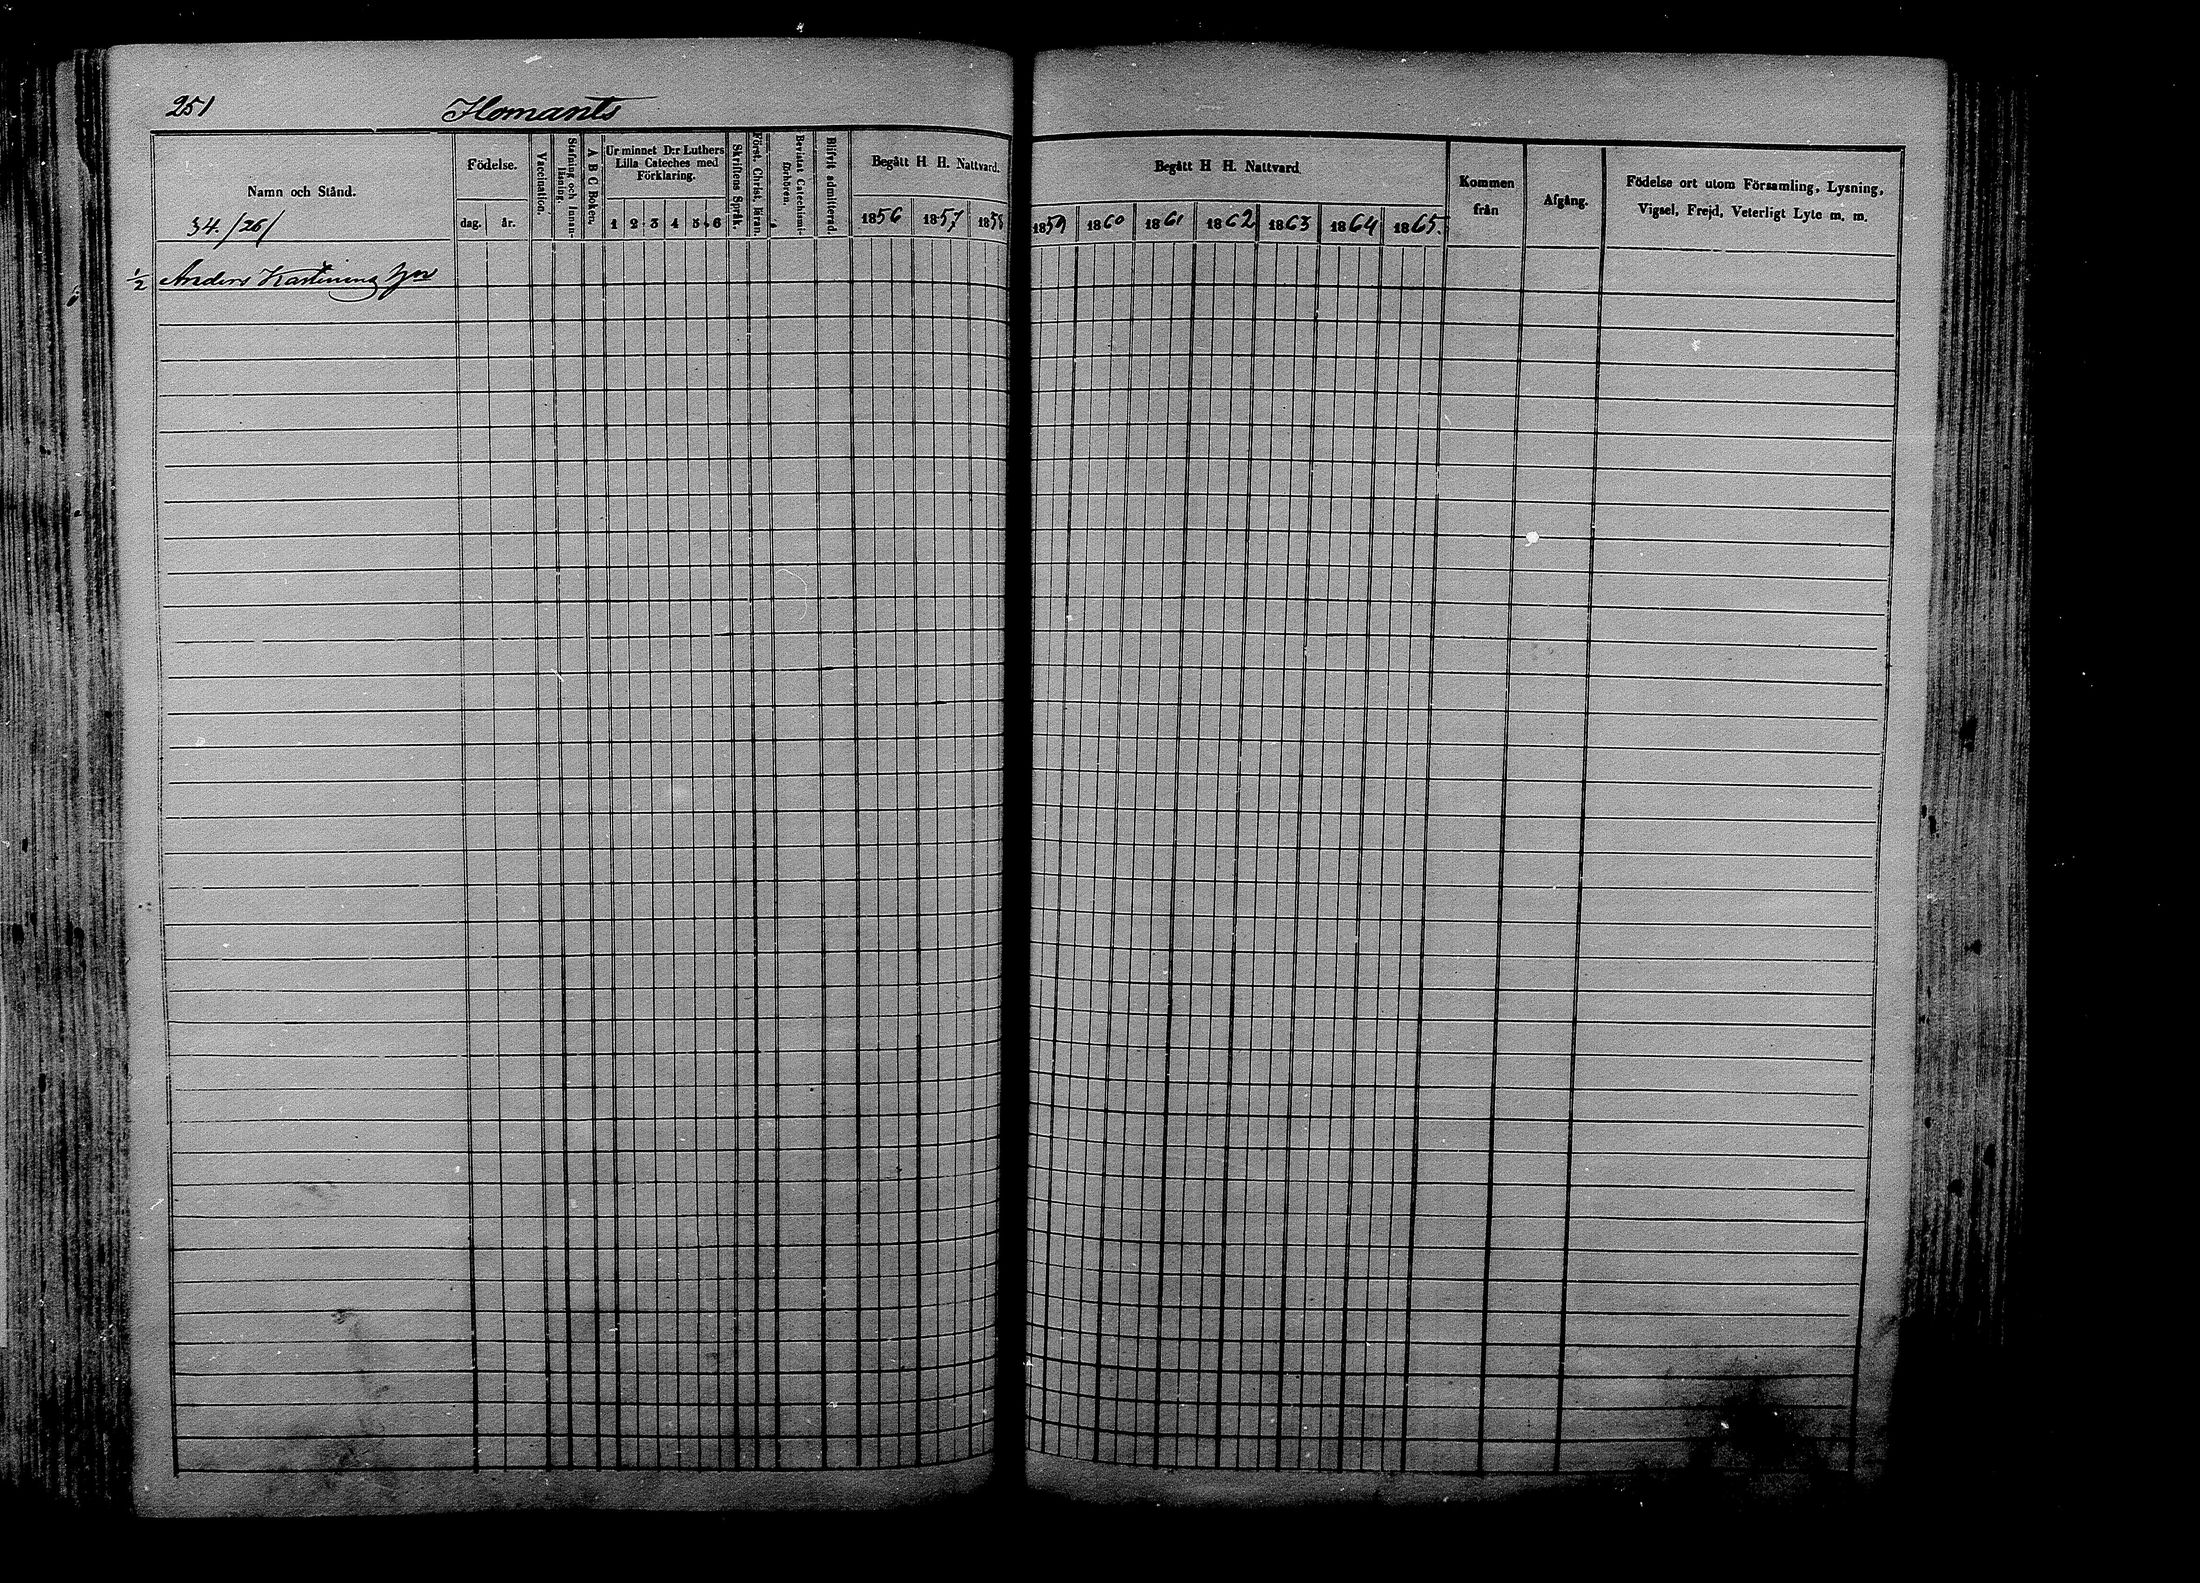 251 Homants
Namn och Stånd.
34./26/
Födelse.
dag. år.
Vaccination.
Stafning och Innan-
läsning.
A B C Boken.
Ur minnet D:r Luthers
Lilla Cateches med
Förklaring.
1 2 3 4 5 6
Skriftens Språk.
Först. Christ. läran.
Bevistat Catechismi-
förhören.
Blifvit admitterad.
Begått H H. Nattvard.
1856 1857 1858
Begått H H. Nattvard
1859 1860 1861 1862 1863 1864 1865.
Kommen
från
Afgång.
Födelse ort utom Församling, Lysning,
Vigsel, Frejd, Veterligt Lyte m. m.
1/2 Anders